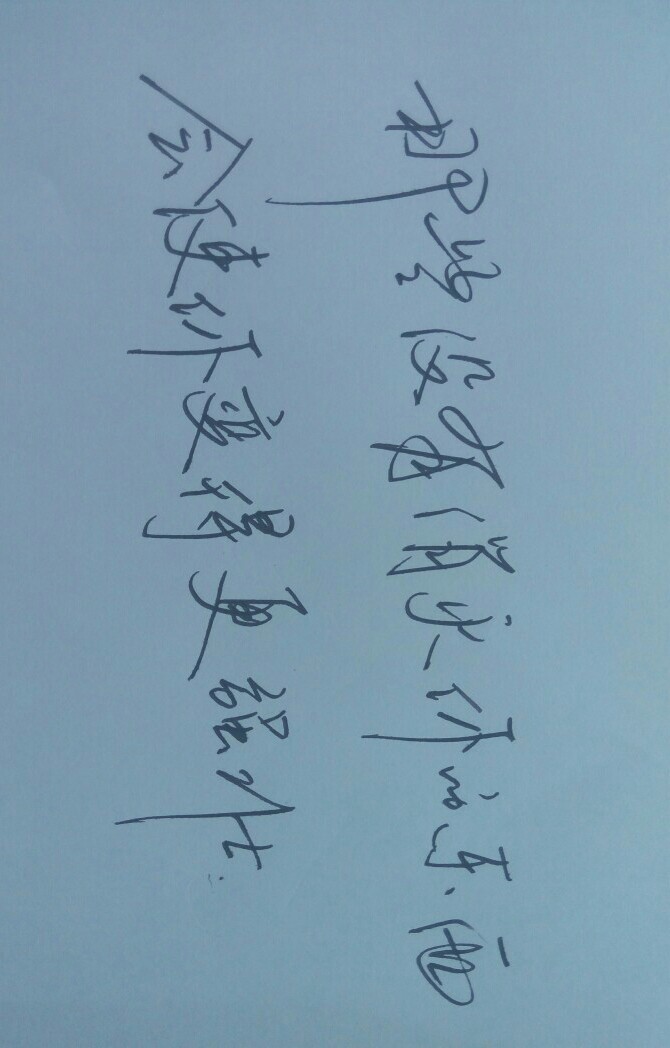 那些没有消灭你的东西
会使你变得更强壮.